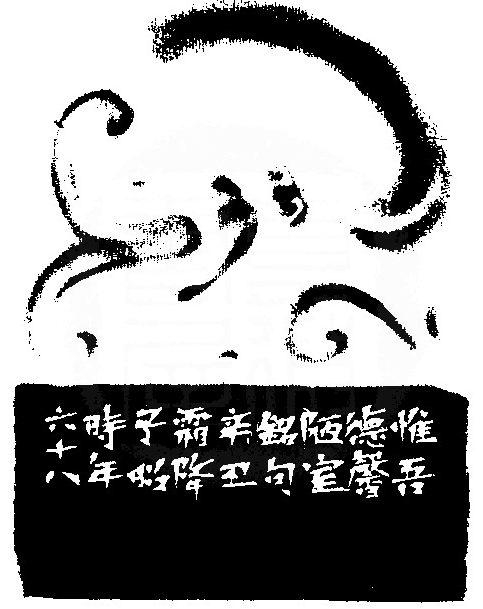 惟吾
德馨
陋室
銘句
辛丑
霜降
子
時年
六十八